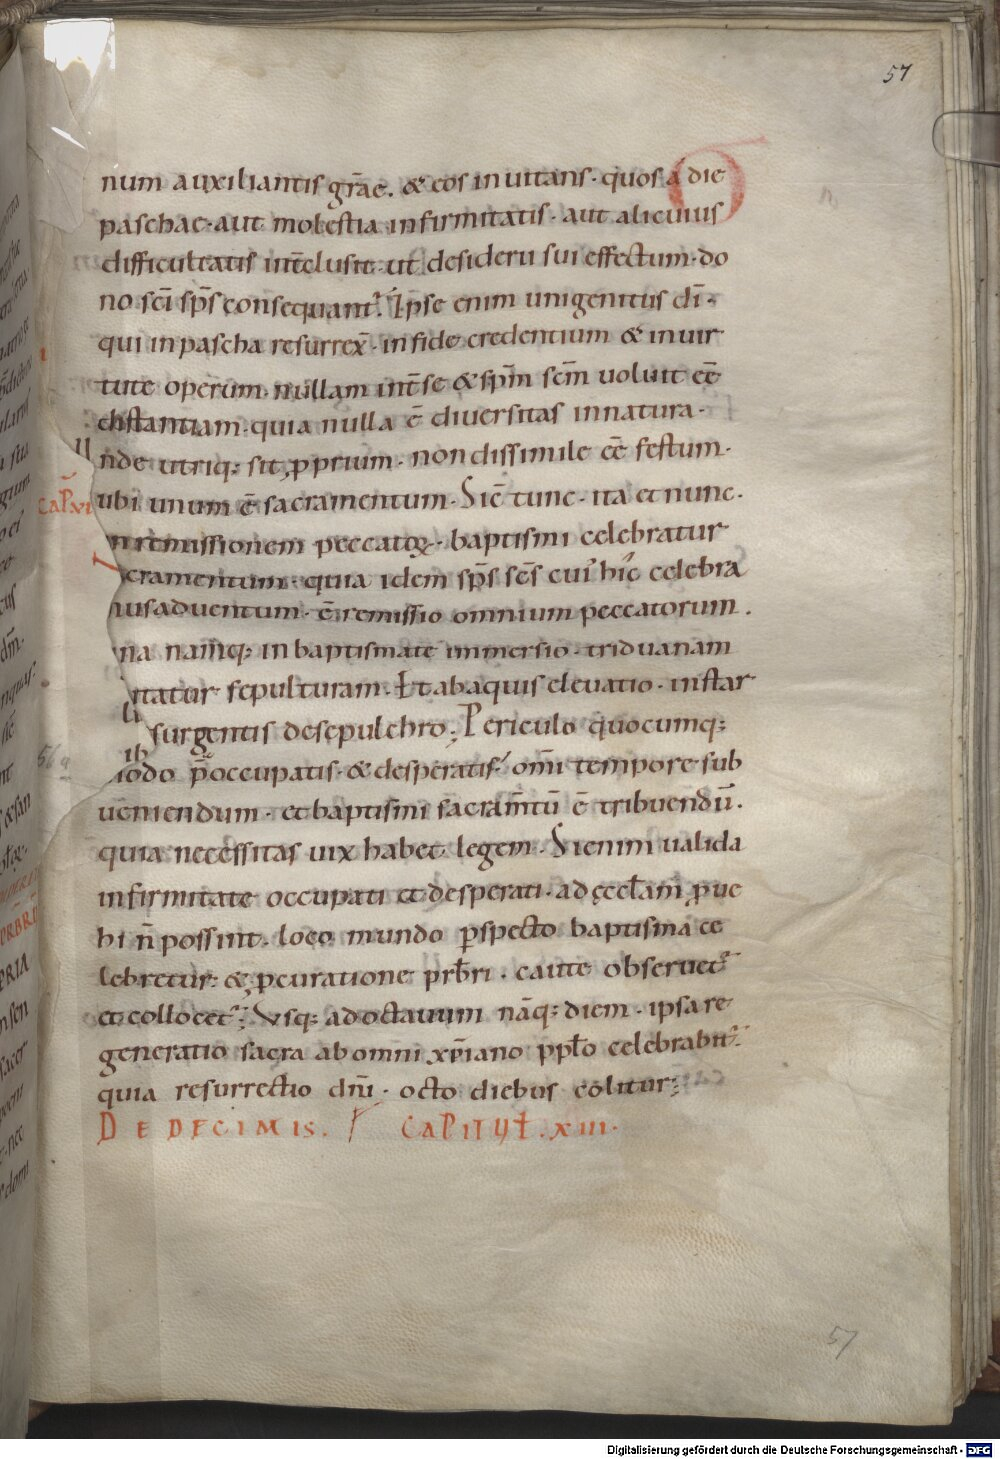 57
num auxiliantis gr̄ae. & eos inuitans. quos a die
paschae. aut molestia infirmitatis. aut alicuius
difficultatis int̄clusit. ut desiderii sui effectum. do
no sc̄i sp̄s consequant᷑. Ipse enim unigenitus dī.
qui in pascha resurrex̄. in fide credentium & in uir
tute operum. nullam int̄ se & sp̄m sc̄m uoluit eē
distantiam. quia nulla ē diversitas in natura.
Unde utriq; sit ꝓprium. non dissimile eē festum.
Cap̄. vi
ubi unum ē sacramentum. Sic̄ tunc. ita et nunc.
in remissionem peccatoꝝ. baptismi celebratur
cramentum. quia idem sp̄s sc̄s cui' hic celebra
nus adventum. ē remissio omnium peccatorum.
na namq; in baptismate immersio. triduanam
itatur sepulturam. Et ab aquis elevatio. instar
surgentis de sepulchro; Periculo quocumq;
modo p̄occupatis. & desperatis. om̄i tempore sub
ueniendum. et baptismi sacram̄tū ē tribuendū.
quia necessitas uix habet legem. Si enim ualida
infirmitate occupati et desperati. ad ęccl̄am ꝓue
hi n̄ possint. loco mundo ꝑspecto baptisma ce
lebretur. & ꝓcuratione prb̄ri. caute obseruet᷑
et collocet᷑; Usq; ad octauum nāq; diem. ipsa re
generatio sacra ab omni xp̄iano ppl̄o celebrabit᷑.
quia resurrectio dn̄i. octo diebus colitur;
DE DECIMIS. CAPITUŁ. XIII.
57
Digitalisierung gefördert durch die Deutsche Forschungsgemeinschaft - DFG